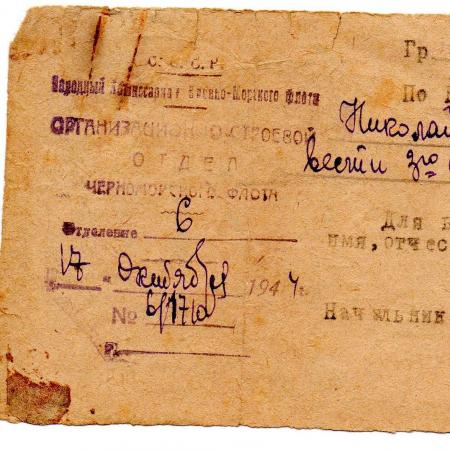 С.С.С.Р.
Народный Комиссариат Военно-Морского флота
ОРГАНИЗАЦИОННО-СТРОЕВОЙ
ОТДЕЛ
ЧЕРНОМОРСКОГО ФЛОТА
Отделение 6
17 " Октября 1944
№ 6/1710
Гр
По
Николай
вести
Для
имя, отчес
Начальник